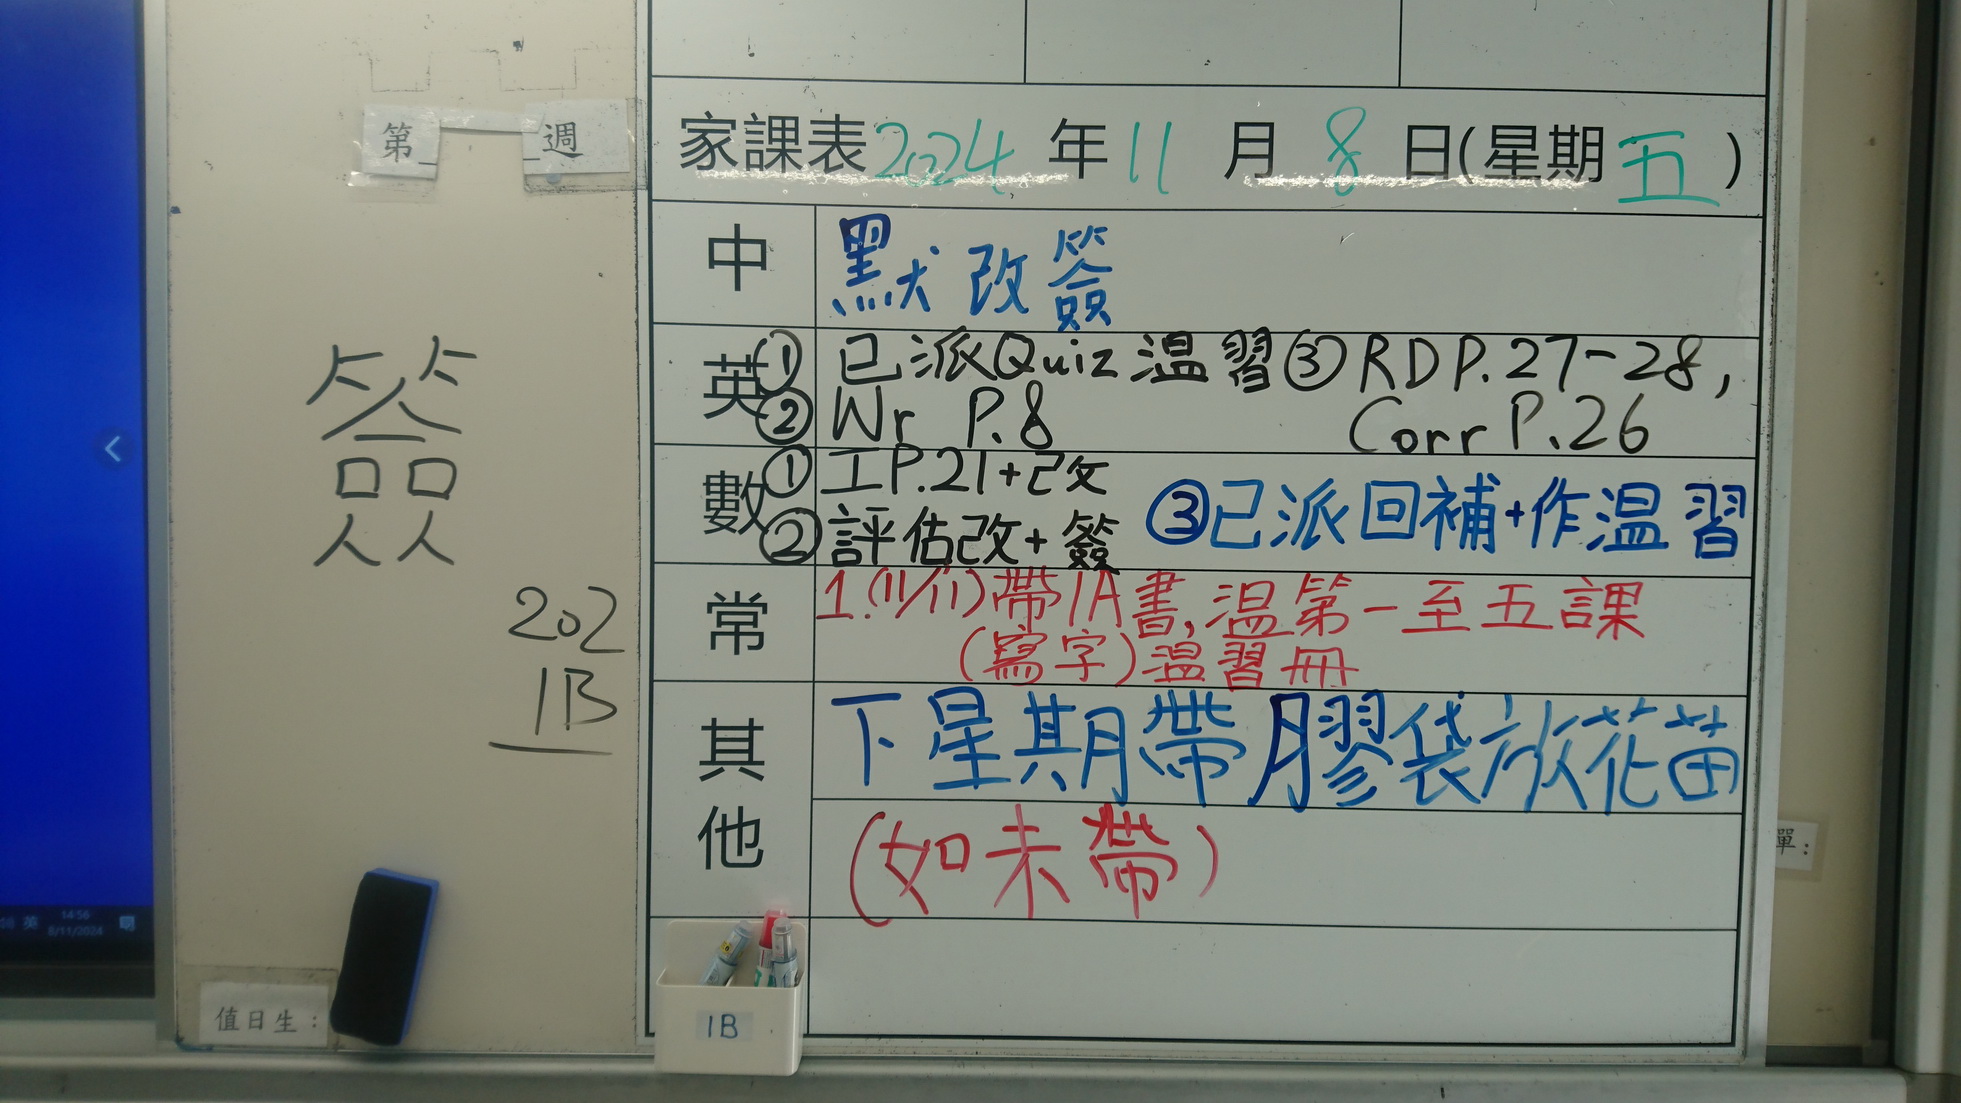 第 週
簽
202
1B
值日生：
英 14:56
8/11/2024
家課表2024年11月8日(星期五)
中 默改簽
英 ①已派Quiz温習 ③RD P.27-28,
②Wr P.8 Corr P.26
數 ①工P.21+改
②評估改+簽 ③已派回補+作温習
常 1.(11/11)帶1A書,温第一至五課
(寫字)温習冊
其他 下星期帶膠袋放花苗
(如未帶)
1B
單：